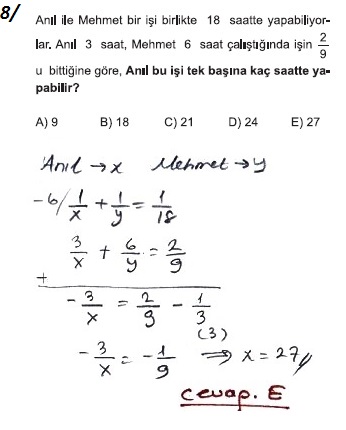 8/
Anıl ile Mehmet bir işi birlikte 18 saatte yapabiliyor-
lar. Anıl 3 saat, Mehmet 6 saat çalıştığında işin 2/9
u bittiğine göre, Anıl bu işi tek başına kaç saatte ya-
pabilir?
A) 9 B) 18 C) 21 D) 24 E) 27
Anıl → x Mehmet → y
-6/ 1/x + 1/y = 1/18
3/x + 6/y = 2/9
+
- 3/x = 2/9 - 1/3
(3)
- 3/x = - 1/9 ⇒ x = 27//
cevap. E